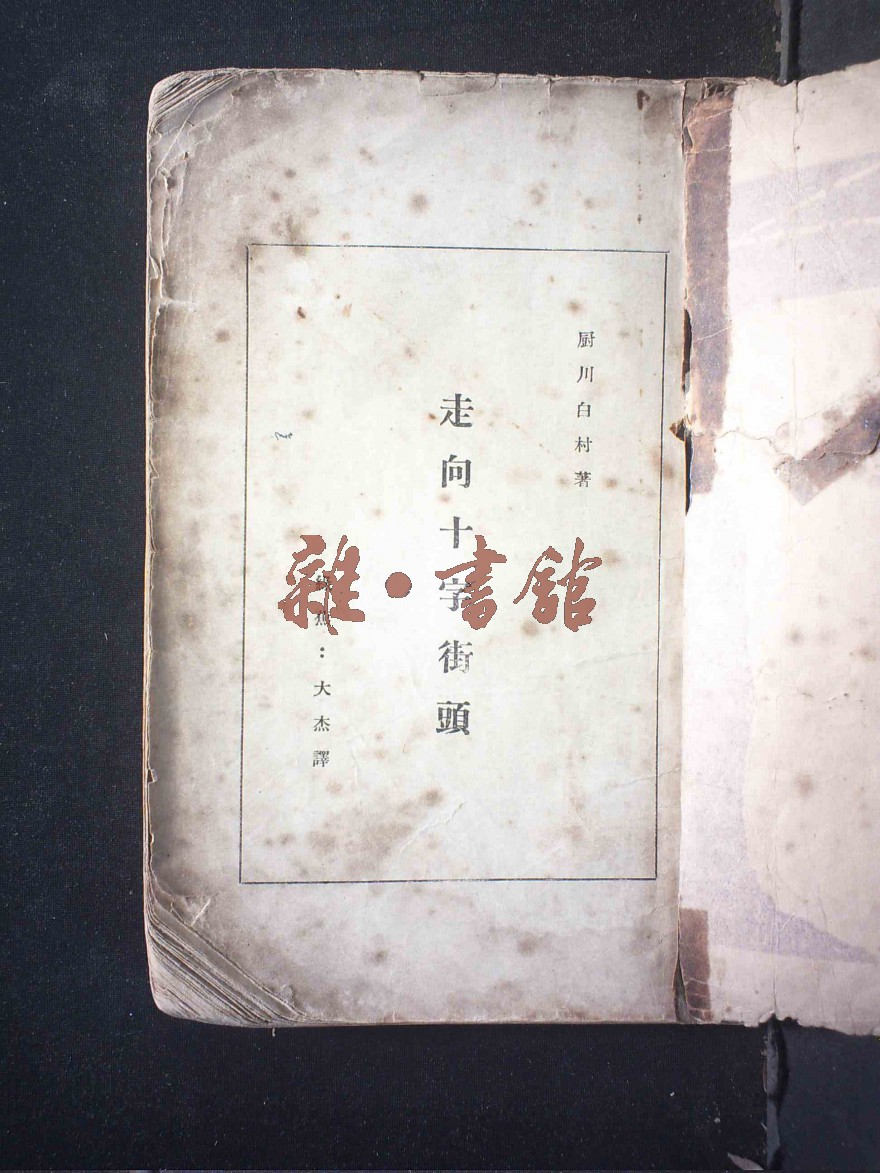 厨川白村著
走向十字街頭
綠蕉：大杰譯
雜·書館